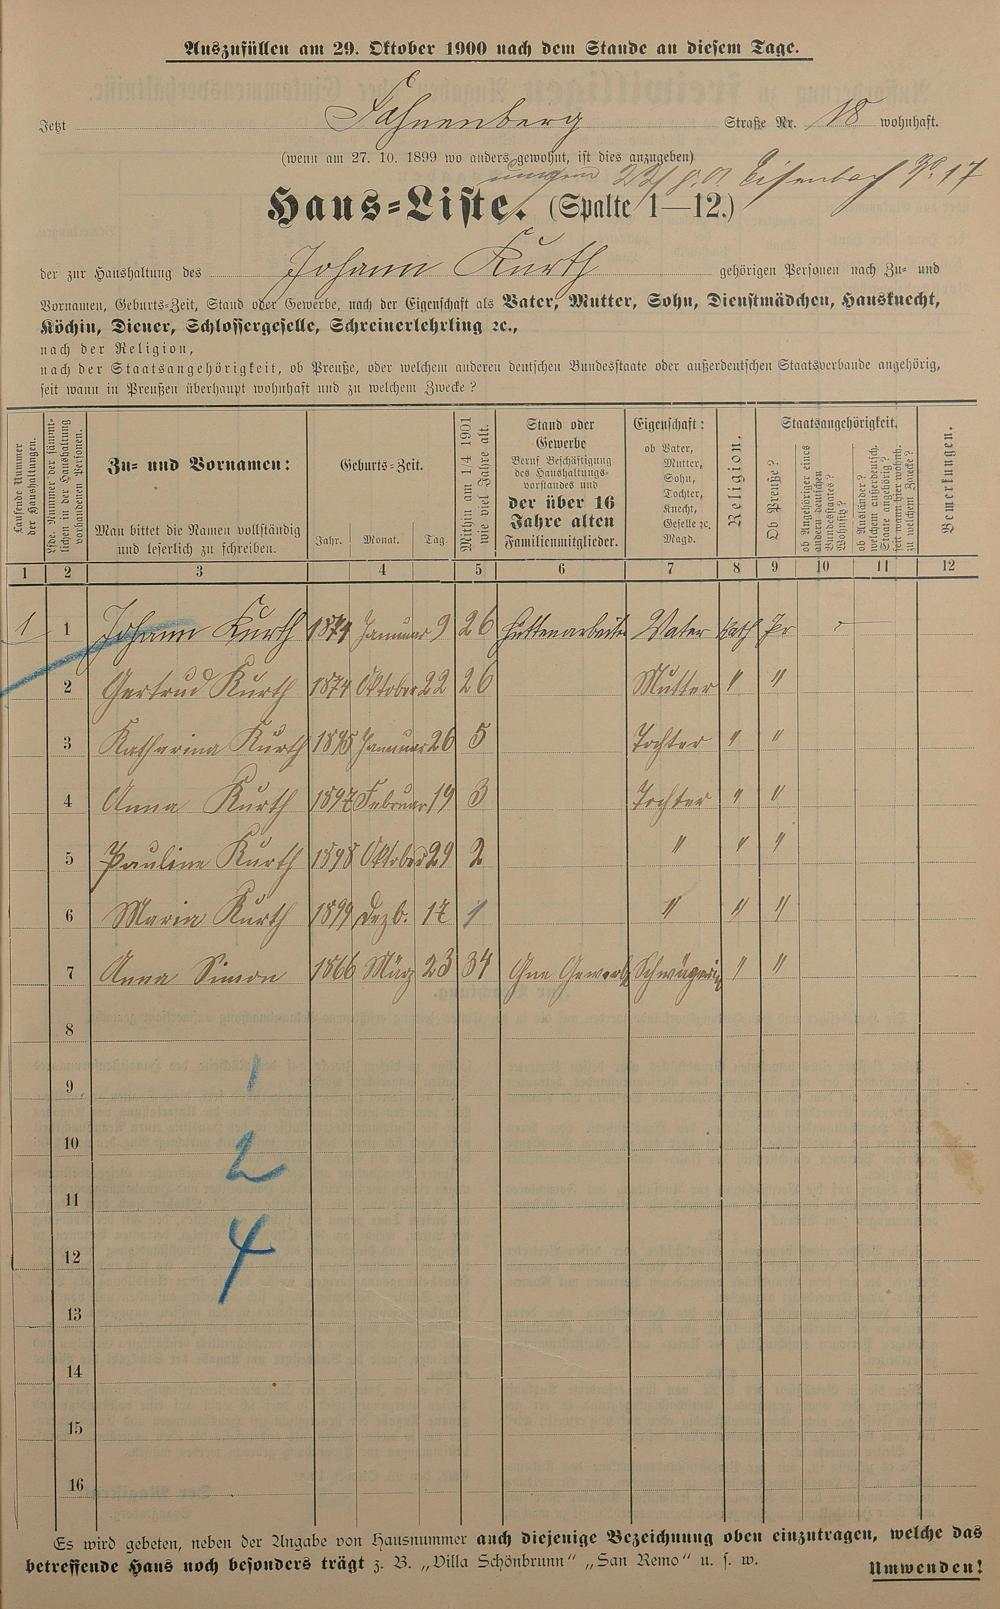 Auszufüllen am 29. Oktober 1900 nach dem Stande an diesem Tage.
Jetzt Fahnenberg Straße Nr. 18 wohnhaft.
(wenn am 27. 10. 1899 wo anders gewohnt, ist dies anzugeben)
Eisenbach No. 17
Haus-Liste. (Spalte 1—12.)
der zur Haushaltung des Johann Kurth gehörigen Personen nach Zu- und
Vornamen, Geburts-Zeit, Stand oder Gewerbe, nach der Eigenschaft als Vater, Mutter, Sohn, Dienstmädchen, Hausknecht,
Köchin, Diener, Schlossergeselle, Schreinerlehrling ꝛc.,
nach der Religion,
nach der Staatsangehörigkeit, ob Preuße, oder welchem anderen deutschen Bundesstaate oder außerdeutschen Staatsverbande angehörig,
seit wann in Preußen überhaupt wohnhaft und zu welchem Zwecke?
Laufende Nummer der Haushaltungen.
Lfde. Nummer der sämmtlichen in der Haushaltung vorhandenen Personen.
Zu- und Vornamen:
Man bittet die Namen vollständig
und leserlich zu schreiben.
Geburts-Zeit.
Jahr. Monat. Tag.
Mithin am 1/4 1901 wie viel Jahre alt.
Stand oder
Gewerbe
Beruf Beschäftigung
des Haushaltungs-
vorstandes und
der über 16
Jahre alten
Familienmitglieder.
Eigenschaft:
ob Vater,
Mutter,
Sohn,
Tochter,
Knecht,
Geselle ꝛc.
Magd.
Religion.
Staatsangehörigkeit.
Ob Preuße?
ob Angehöriger eines andern deutschen Bundesstaates? Wohnsitz?
ob Ausländer? welchem außerdeutsch. Staate angehörig? seit wann hier wohnh. zu welchem Zwecke?
Bemerkungen.
1 2 3 4 5 6 7 8 9 10 11 12
1 1 Johann Kurth 1874 Januar 9 26 Hüttenarbeiter Vater kath Pr
2 Gertrud Kurth 1874 Oktober 22 26 Mutter " "
3 Katharina Kurth 1895 Januar 26 5 Tochter " "
4 Anna Kurth 1897 Februar 19 3 Tochter " "
5 Pauline Kurth 1898 Oktober 29 2 " " "
6 Maria Kurth 1899 Dezb. 17 1 " " "
7 Anna Simon 1866 März 23 34 Gewerb Schwägerin " "
8
9
1
10
2
11
12
4
13
14
15
16
Es wird gebeten, neben der Angabe von Hausnummer auch diejenige Bezeichnung oben einzutragen, welche das
betreffende Haus noch besonders trägt z. B. „Villa Schönbrunn“ „San Remo“ u. s. w.
Umwenden!